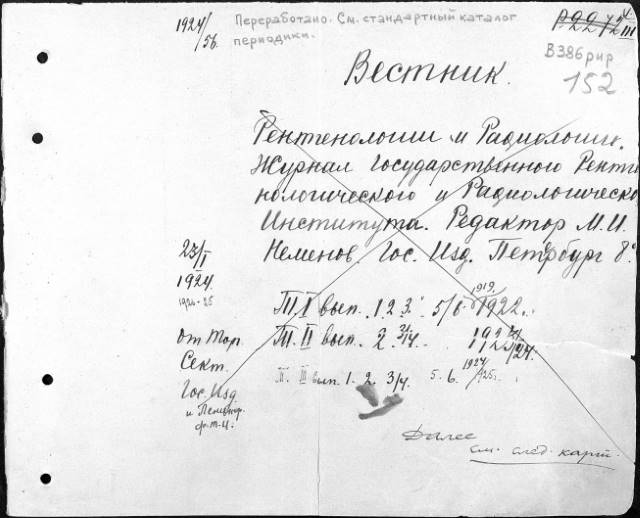 1924/56. Переработано. См. стандартный каталог
периодики.
В386рир
152
Вестник.
Рентгенологии и Радиологии.
Журнал Государственного Рентге
нологического и Радиологическо
Института. Редактор М.И.
Неменов. Гос. Изд. Петербург 8°
23/I
1924.
1924-25
Т. I вып. 1. 2. 3. 5/6. 1919/1922.
Т. II вып. 2. 3/4.
Т. III вып. 1. 2. 3/4. 5. 6. 1924/25.
от Тор.
Сект.
Гос. Изд.
Далее
см. след. карт.